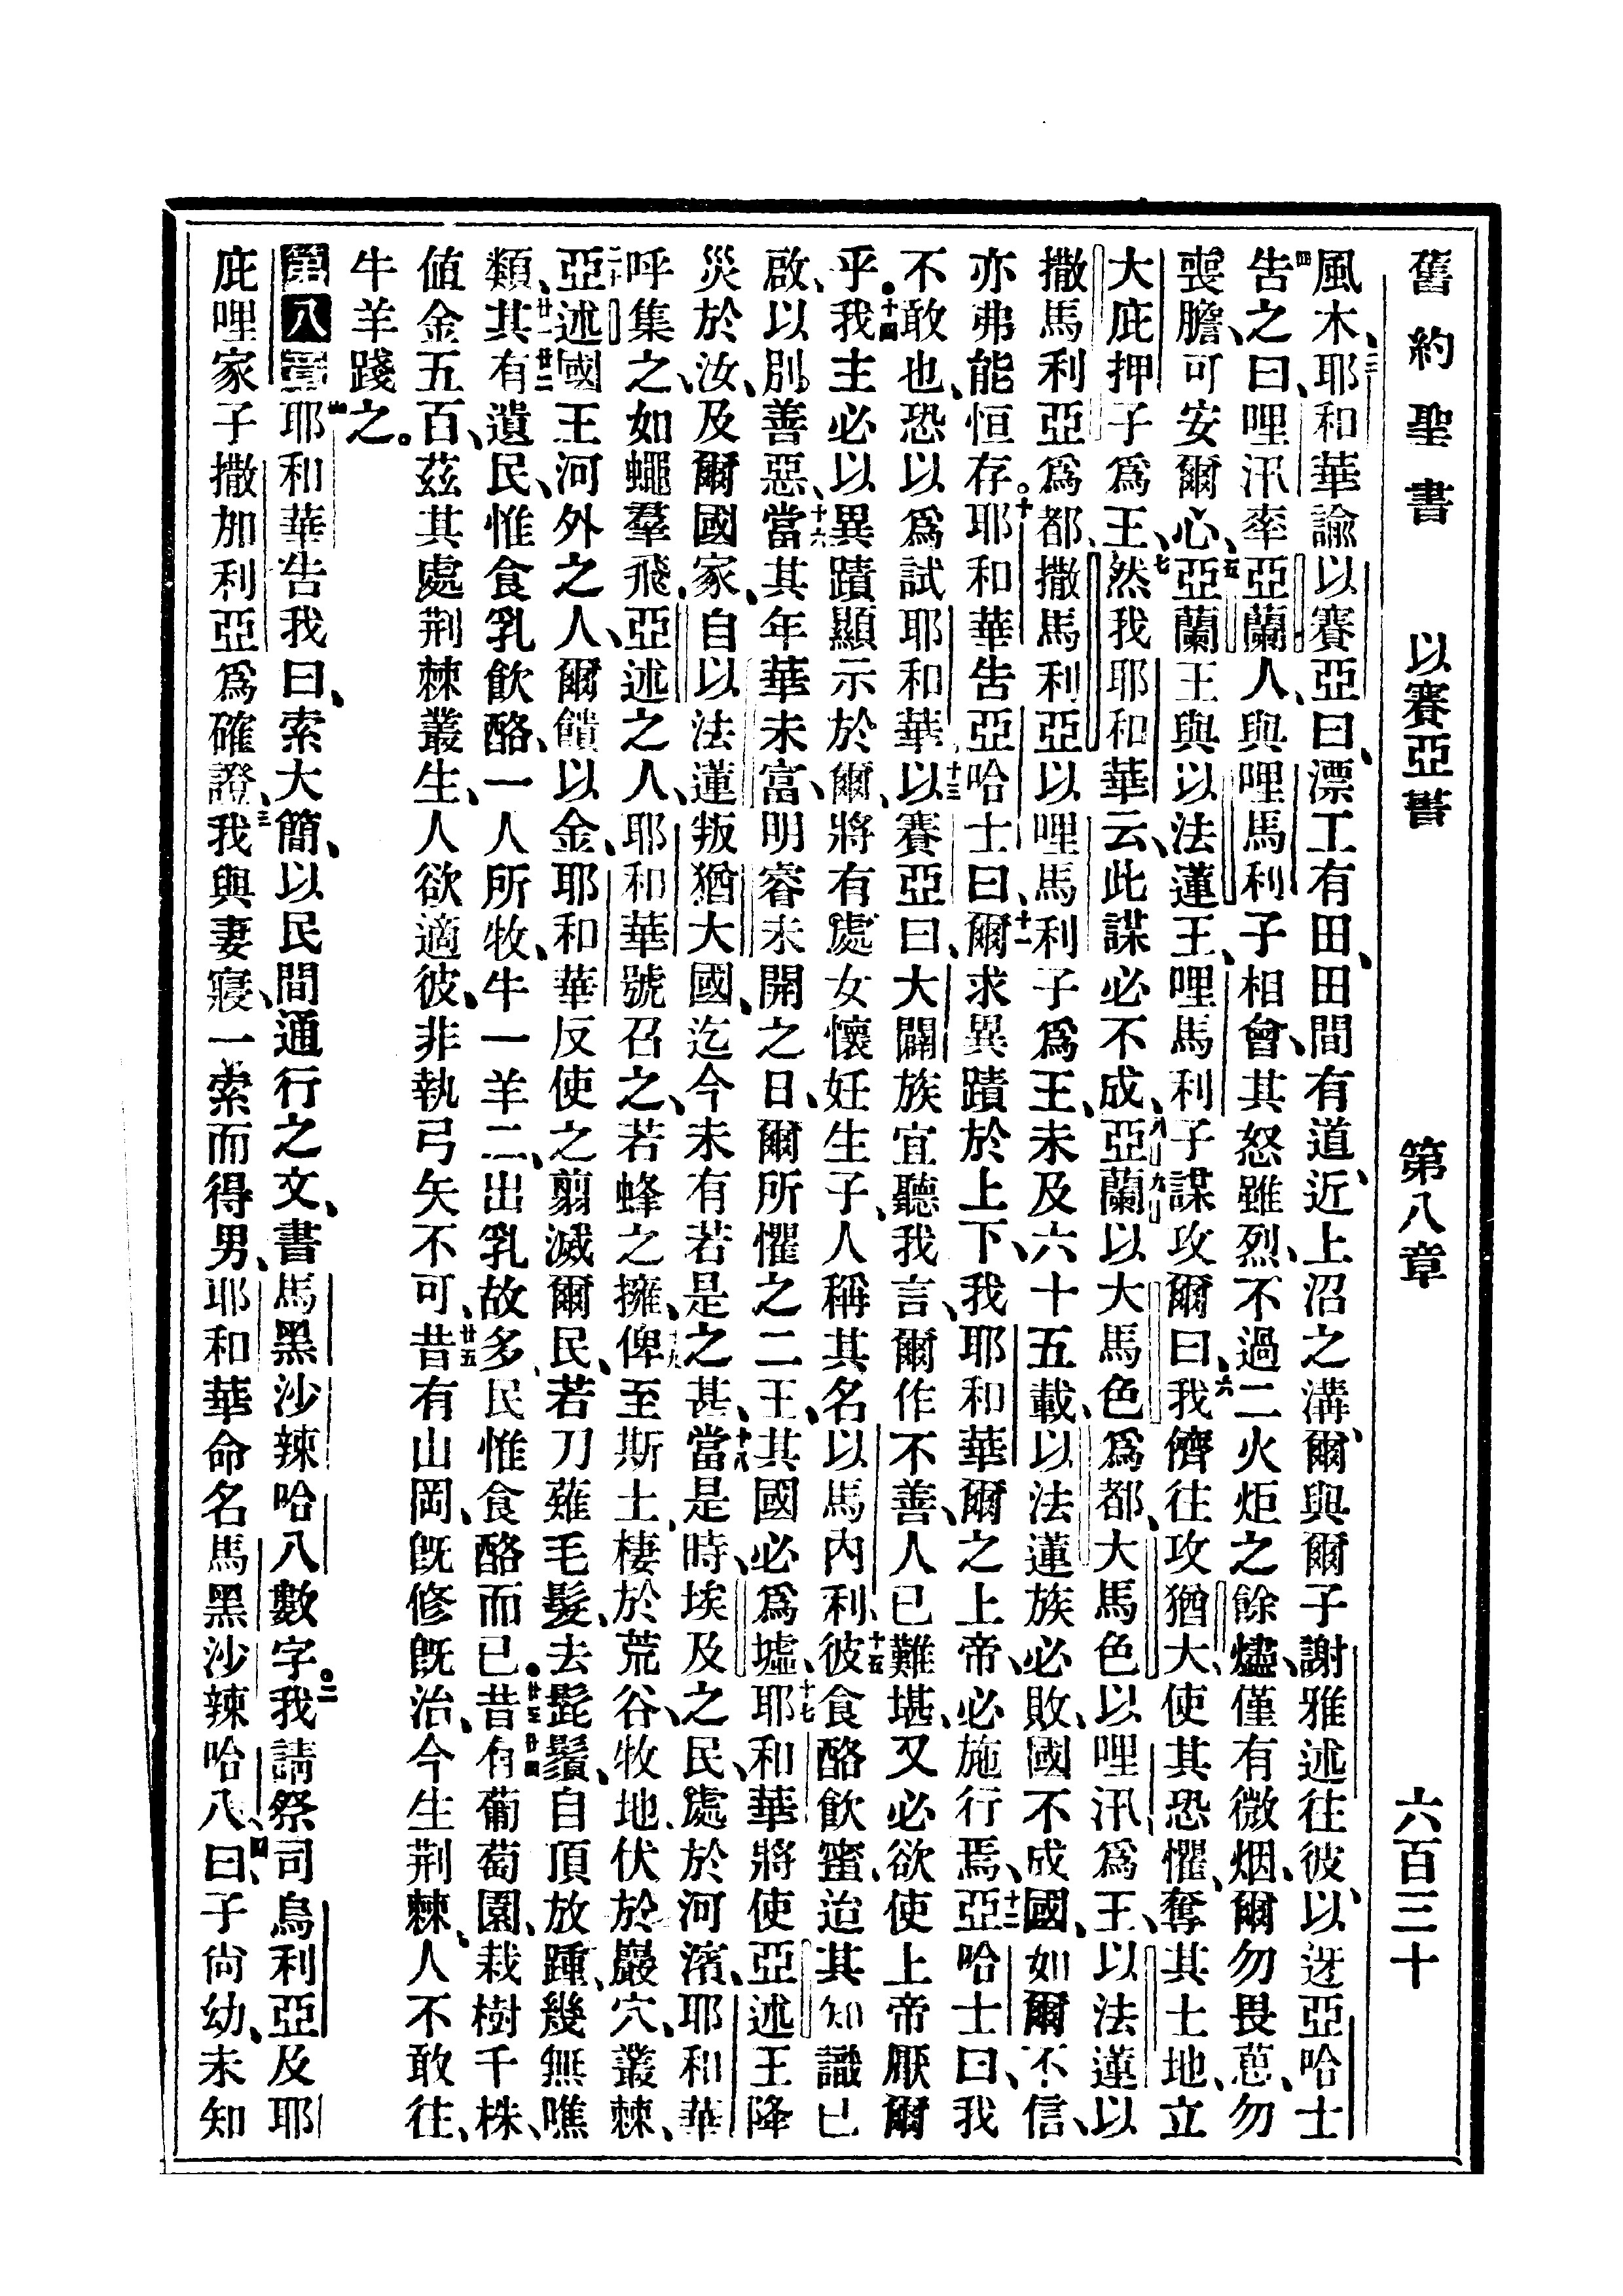 舊約聖書 以賽亞書 第八章 六百三十
風木、三耶和華諭以賽亞曰、漂工有田、田間有道、近上沼之溝、爾與爾子謝雅述往彼、以迓亞哈士
四告之曰、哩汛率亞蘭人、與哩馬利子相會、其怒雖烈、不過二火炬之餘燼、僅有微烟、爾勿畏葸、勿
喪膽、可安爾心、五亞蘭王與以法蓮王、哩馬利子謀攻爾曰、六我儕往攻猶大、使其恐懼、奪其土地、立
大庇押子爲王、七然我耶和華云、此謀必不成、八九亞蘭以大馬色爲都、大馬色以哩汛爲王、以法蓮以
撒馬利亞爲都、撒馬利亞以哩馬利子爲王、未及六十五載、以法蓮族必敗、國不成國、如爾不信、
亦弗能恒存。十耶和華告亞哈士曰、十一爾求異蹟於上下、我耶和華爾之上帝、必施行焉、十二亞哈士曰、我
不敢也、恐以爲試耶和華、十三以賽亞曰、大闢族宜聽我言、爾作不善、人已難堪、又必欲使上帝厭爾
乎。十四我主必以異蹟顯示於爾、將有處女懷妊生子、人稱其名以馬內利、十五彼食酪飲蜜、迨其知識已
啟、以別善惡、十六當其年華未富、明睿未開之日、爾所懼之二王、其國必爲墟、十七耶和華將使亞述王降
災於汝、及爾國家、自以法蓮叛猶大國、迄今未有若是之甚、十八當是時、埃及之民、處於河濱、耶和華
呼集之、如蠅羣飛、亞述之人、耶和華號召之、若蜂之擁、十九俾至斯土、棲於荒谷、牧地、伏於巖穴、叢棘、
二十亞述國王河外之人、爾饋以金、耶和華反使之翦滅爾民、若刀薙毛髮、去髭鬚、自頂放踵、幾無噍
類、廿一其廿二有遺民、惟食乳飲酪、一人所牧、牛一羊二、出乳故多、民惟食酪而已。廿三昔廿四有葡萄園、栽樹千株、
値金五百、茲其處荆棘叢生、人欲適彼、非執弓矢不可、廿五昔有山岡、旣修旣治、今生荆棘、人不敢往、
牛羊踐之。
第八章一耶和華告我曰、索大簡、以民間通行之文、書馬黑沙辣哈八數字。二我請祭司烏利亞及耶
庇哩家子撒加利亞爲確證、三我與妻寢、一索而得男、耶和華命名馬黑沙辣哈八、四曰、子尙幼、未知